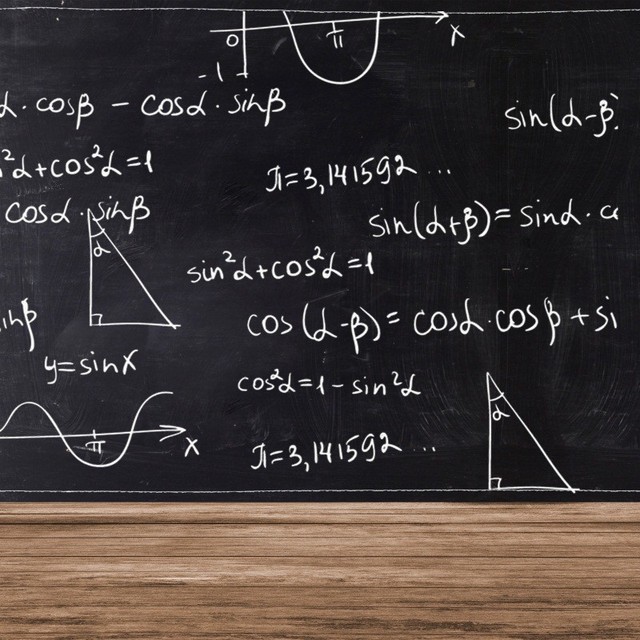 0 π x
-1
α · cosβ - cosα · sinβ
sin(α-β)
²α+cos²α=1
π=3,141592 ...
cosα · sinβ
sin(α+β)= sinα · c
α
sin²α+cos²α=1
inβ
cos(α-β)= cosα·cosβ+si
y=sinx
cos²α=1-sin²α
α
π x
π=3,141592 ...